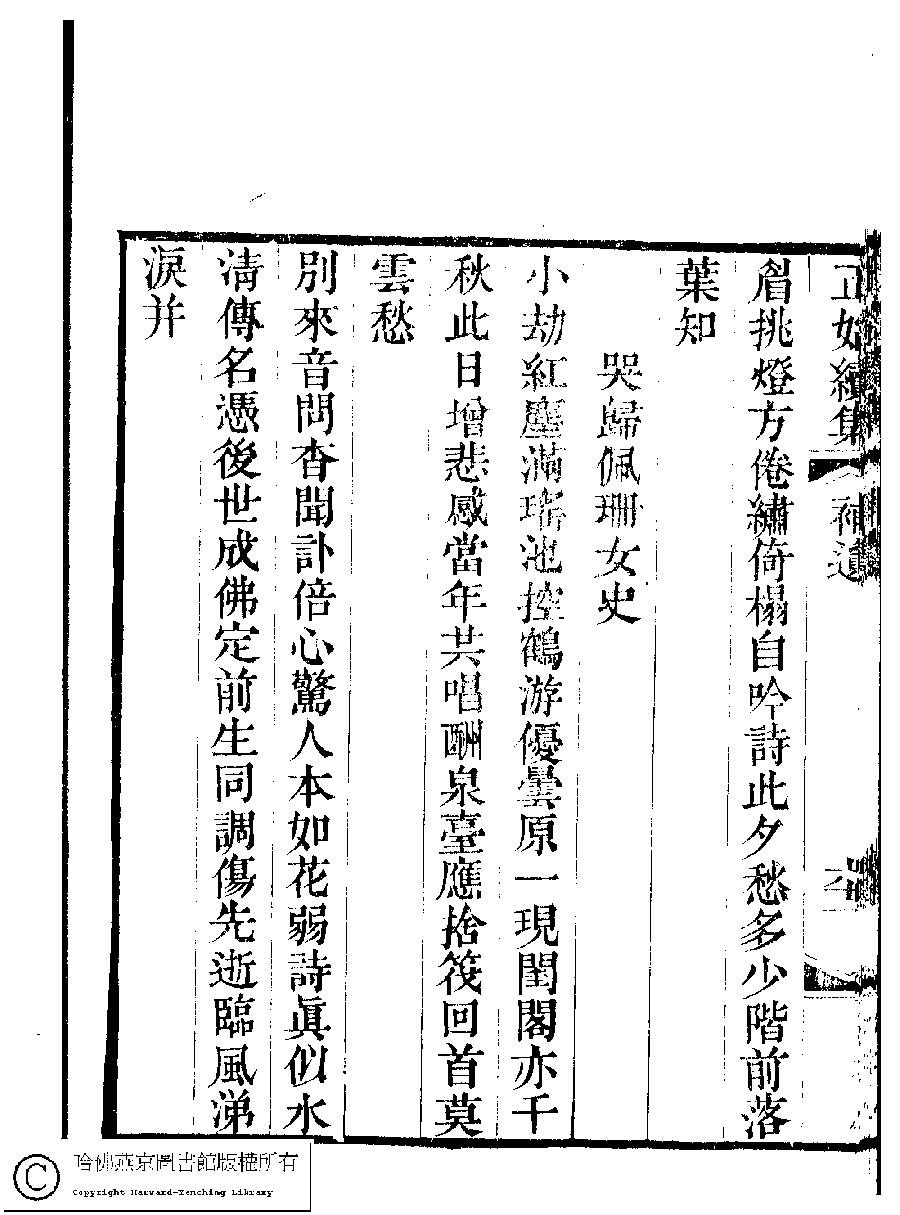 正始續集
補遺
眉挑燈方倦繡倚榻自吟詩此夕愁多少階前落
葉知
哭歸佩珊女史
小劫紅塵滿瑤池控鶴游優曇原一現閨閣亦千
秋此日增悲感當年共唱酬泉臺應捨筏回首莫
雲愁
別來音問杳聞訃倍心驚人本如花弱詩眞似水
淸傳名憑後世成佛定前生同調傷先逝臨風涕
淚并
哈佛燕京圖書館版權所有
Copyright Harvard-Yenching Library